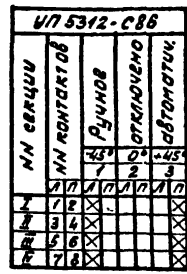 УП 5312-С86
NN секции
NN контактов
Ручное
отключено
автоматич.
-45° 0° +45
1 2 3
Л П Л П Л П Л П
I 1 2
II 3 4
III 5 6
IV 7 8